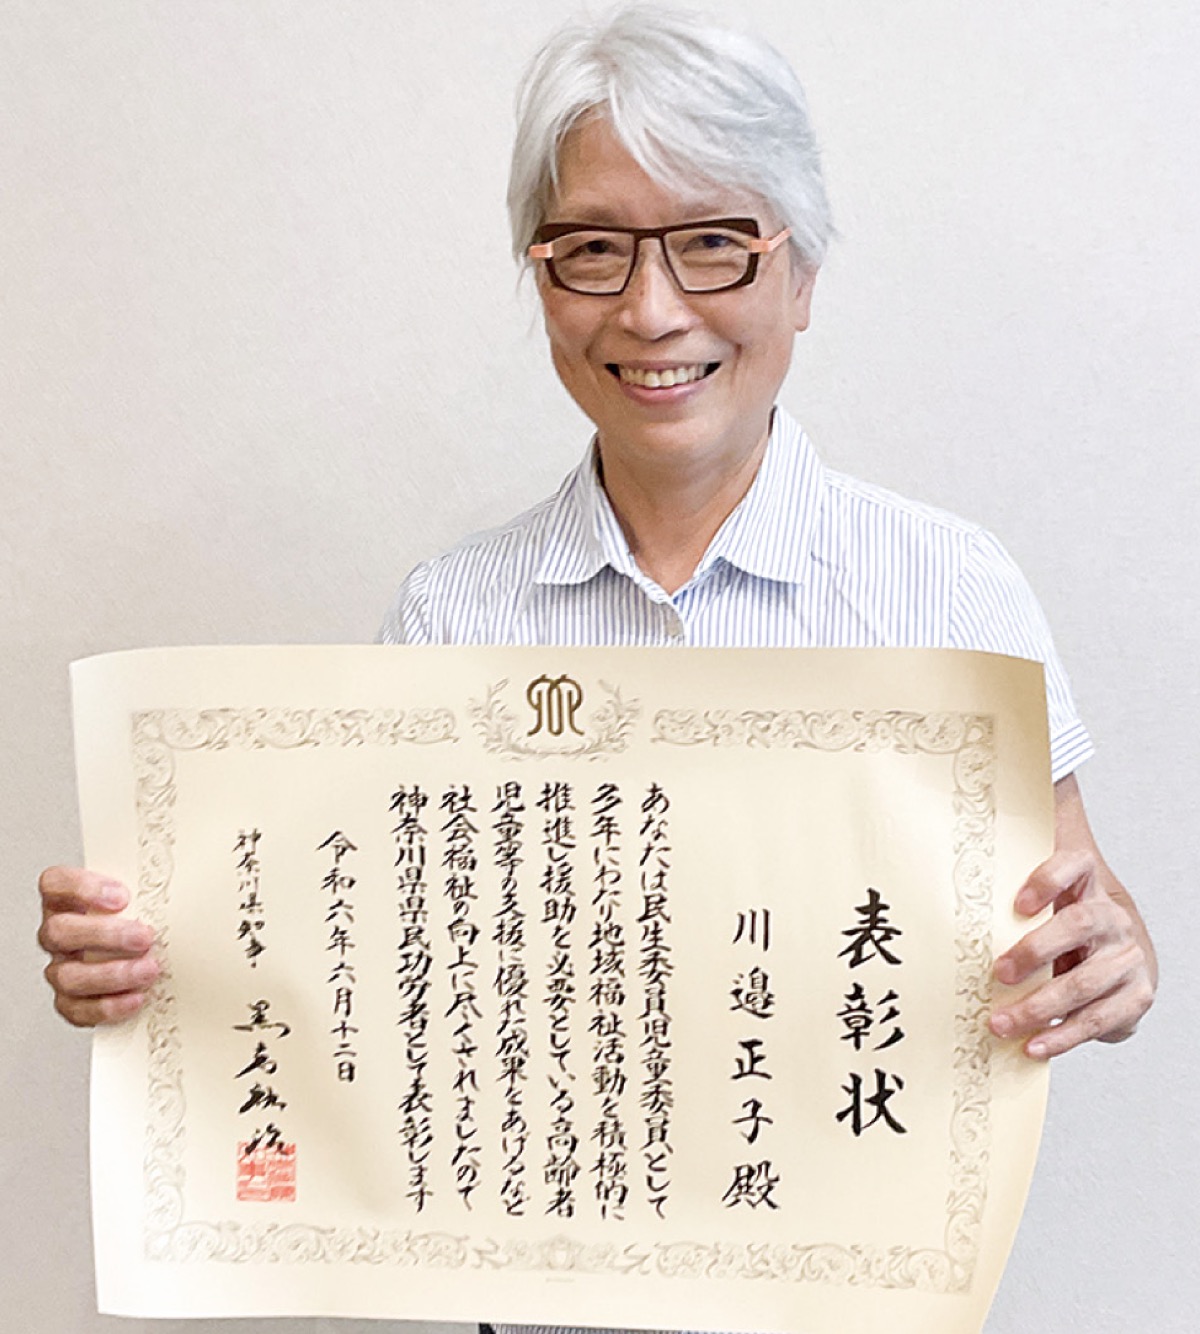 表彰状
川邉正子殿
あなたは民生委員児童委員として
多年にわたり地域福祉活動を積極的に
推進し援助を必要としている高齢者
児童等の支援に優れた成果をあげるなど
社会福祉の向上に尽くされましたので
神奈川県県民功労者として表彰します
令和六年六月十二日
神奈川県知事 黒岩祐治